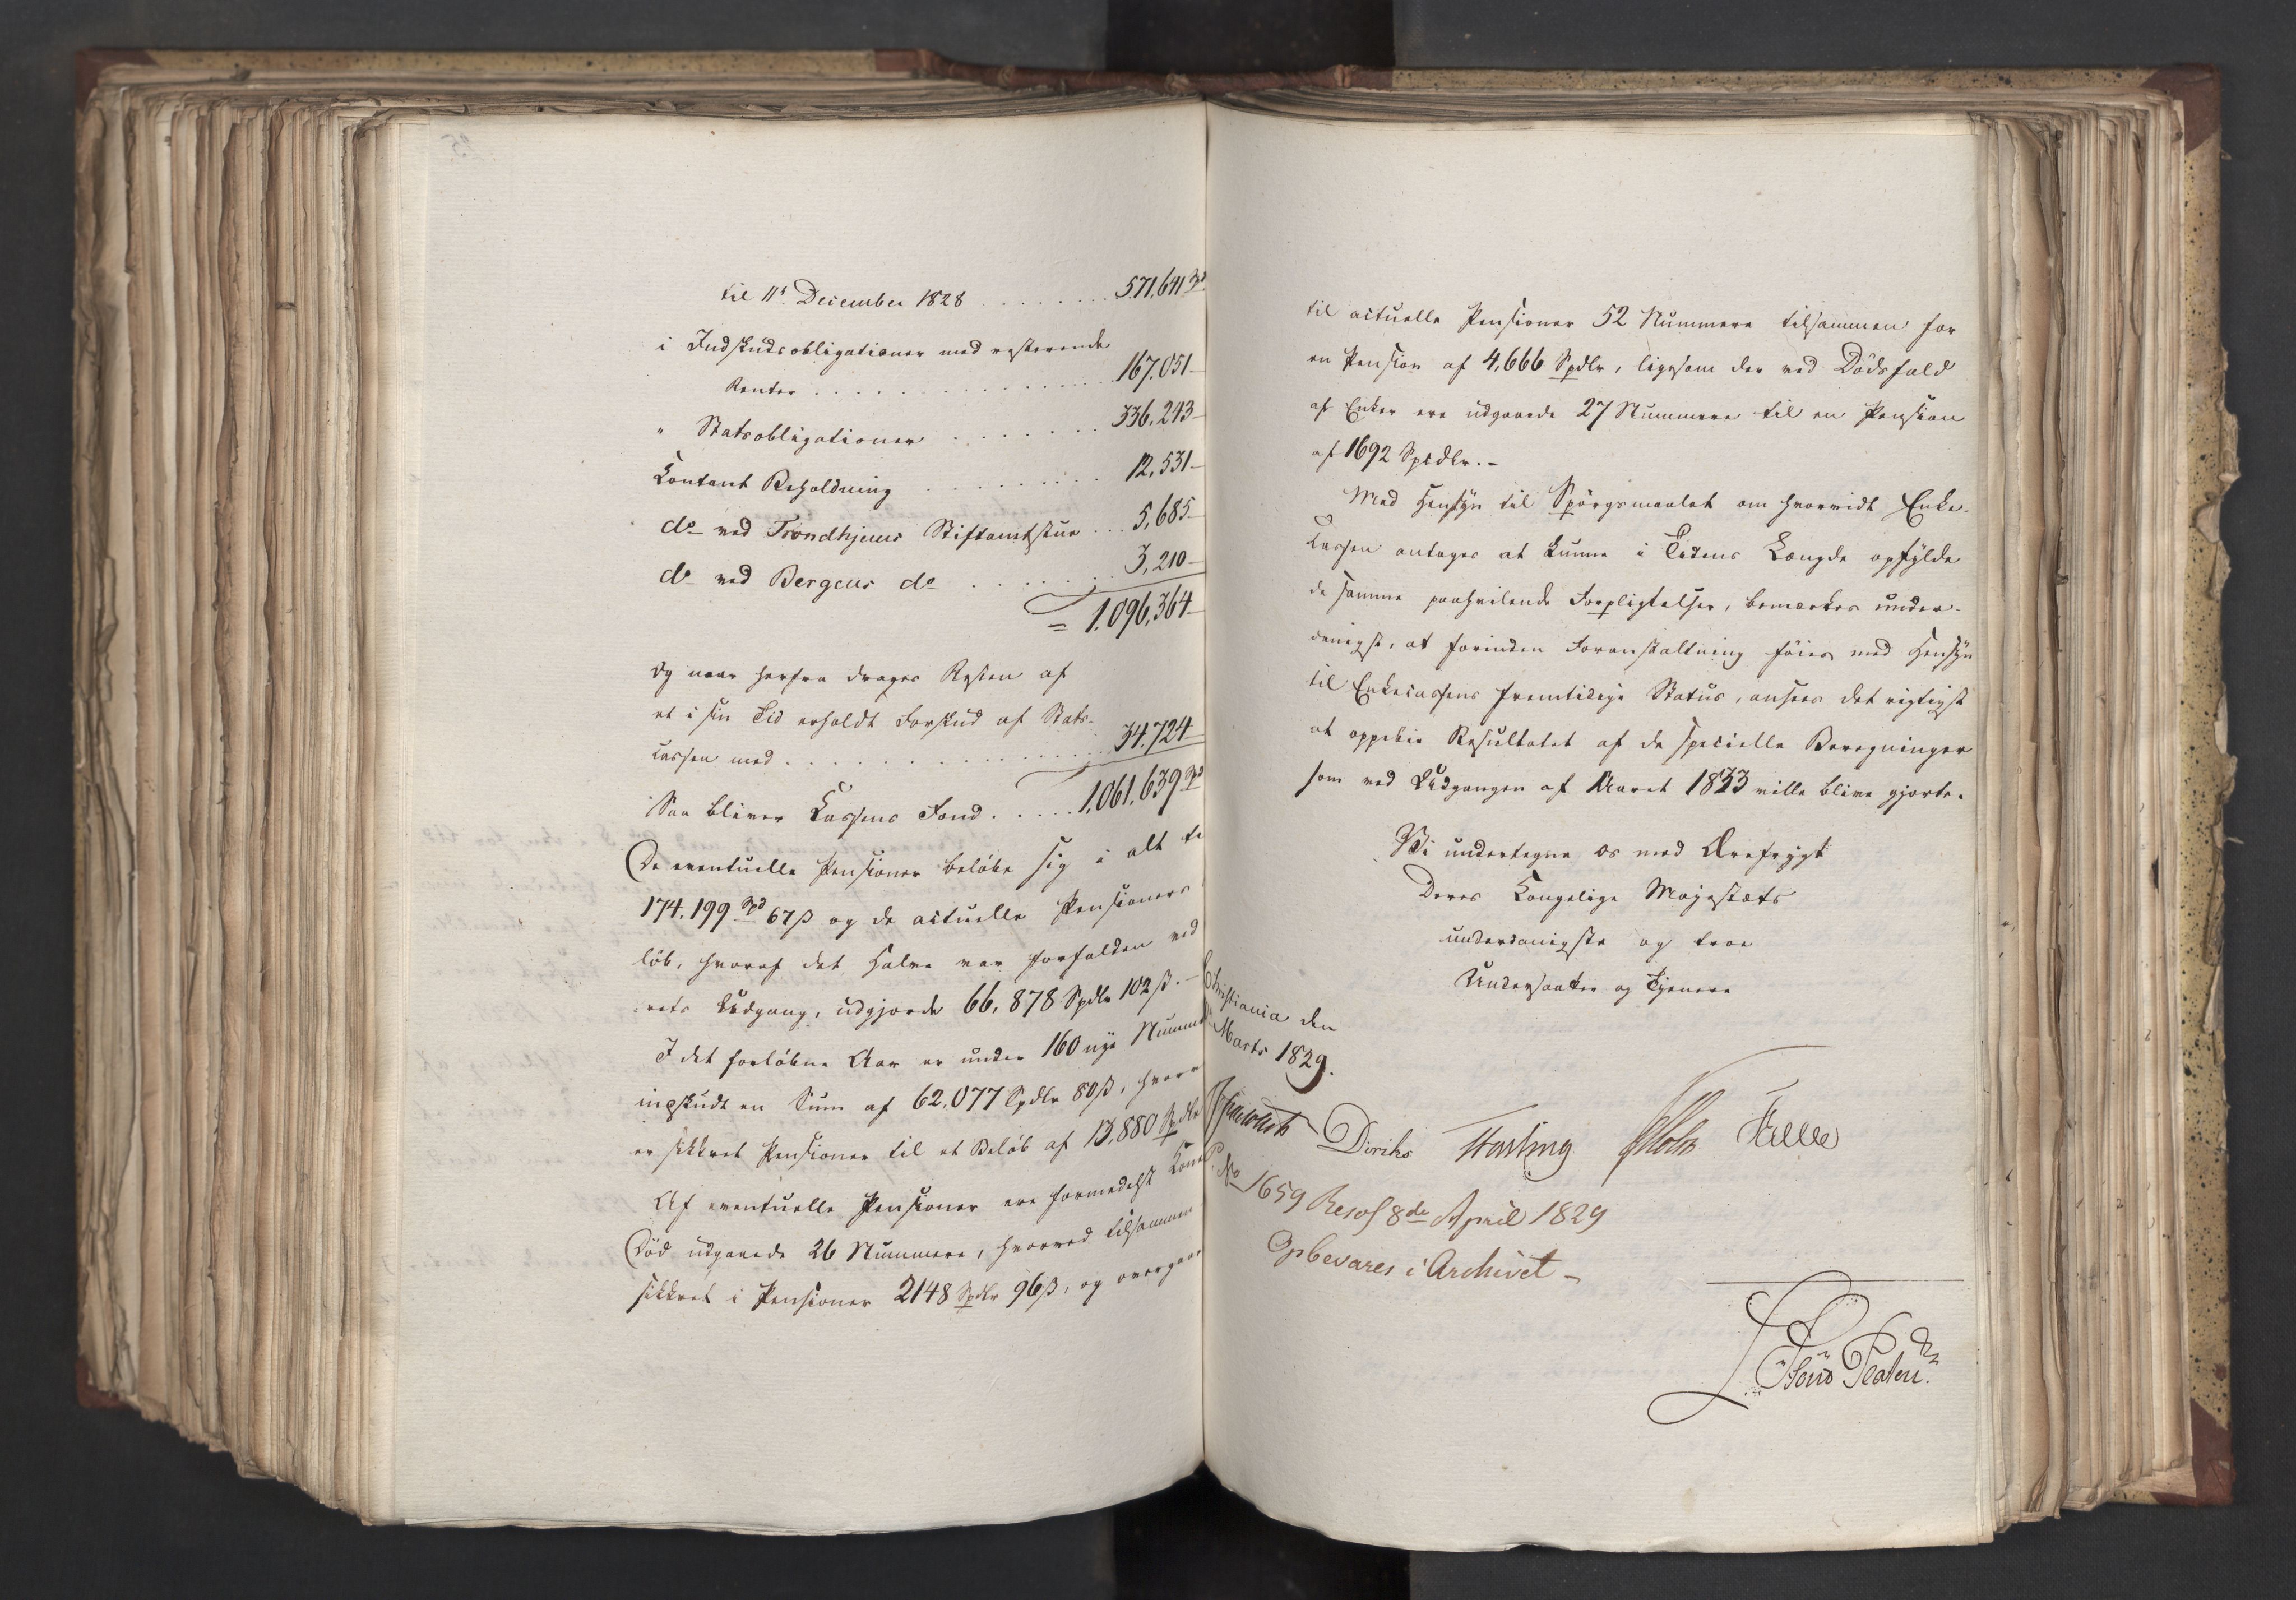 til 11te December 1828 . . . . . . . 571,641 Spd
i Indskudsobligationer med resterende
Renter . . . . . . . . . . . . . . . . 167,051 –
" Statsobligationer . . . . . . . . 336,243 –
Contant Beholdning . . . . . . . . . 12,531 –
do ved Trondhjems Stiftamtstue . . . 5,685 –
do ved Bergens do . . . . . . . 3,210 –
= 1,096,364 –
Og naar herfra drages Resten af
et i sin Tid erholdt Forskud af Stats-
cassen med . . . . . . . . . . . . . . 34,724 –
Saa bliver Cassens Fond . . . . . 1,061,639 Spd
De eventuelle Pensioner beløbe sig i alt ti
174,199 Spd 67 ß og de actuelle Pensioners
løb, hvoraf det Halve var forfalden ved
rets Udgang, udgjorde 66,878 Spdlr 102 ß. –
I det forløbne Aar er under 160 nye Numm
indskudt en Sum af 62,077 Spdlr 80 ß, hvor
er sikkret Pensioner til et Beløb af 13,880 Spdlr
Af eventuelle Pensioner ere formedelst Kone
Død udgaaede 26 Nummere, hvorved tilsammen
sikkret i Pensioner 2148 Spdlr 96 ß, og overgaa
til actuelle Pensioner 52 Nummere tilsammen for
en Pension af 4,666 Spdlr, ligesom der ved Dødsfald
af Enker ere udgaaede 27 Nummere til en Pension
af 1692 Spcdlr. –
Med Hensyn til Spørgsmaalet om hvorvidt Enke-
Cassen antages at kunne i Tidens Længde opfylde
de samme paahvilende Forpligtelser, bemærkes under-
danigst, at forinden Foranstaltning føies med Hensyn
til Enkecassens fremtidige Status, ansees det rigtigst
at oppebie Resultatet af de specielle Beregninger
som ved Udgangen af Aaret 1833 ville blive gjorte.
Vi undertegne os med Ærefrygt
Deres Kongelige Majestæts
underdanigste og troe
Undersaatter og Tjenere
Christiania den
Marts 1829.
Diriks Fasting Holst Falbe
No 1659 Resol 8de April 1829
Opbevares i Archivet –
Platen